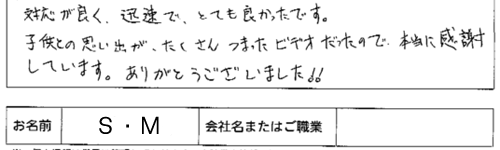 対応が良く、迅速で、とても良かったです。
子供との思い出が、たくさんつまったビデオだったので、本当に感謝
しています。ありがとうございました!!
お名前 S・M 会社名またはご職業